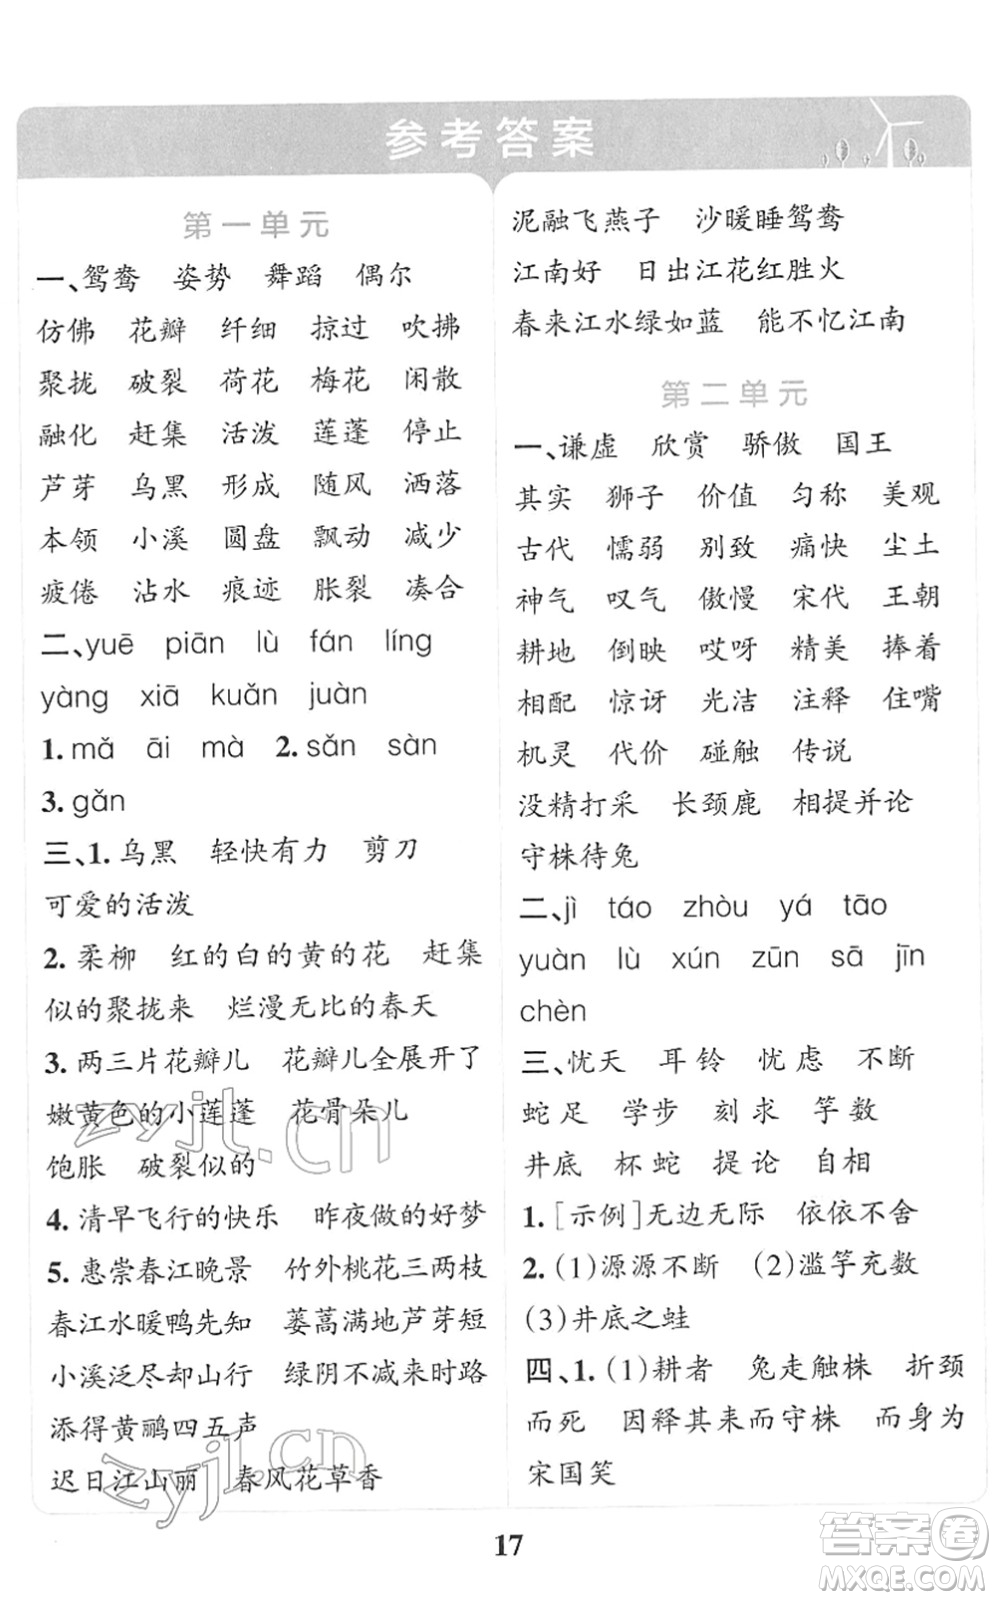 参考答案
第一单元
一、鸳鸯 姿势 舞蹈 偶尔
仿佛 花瓣 纤细 掠过 吹拂
聚拢 破裂 荷花 梅花 闲散
融化 赶集 活泼 莲蓬 停止
芦芽 乌黑 形成 随风 洒落
本领 小溪 圆盘 飘动 减少
疲倦 沾水 痕迹 胀裂 凑合
二、yuē piān lù fán líng
yàng xiā kuǎn juàn
1.mǎ āi mà 2.sǎn sàn
3.gǎn
三、1.乌黑 轻快有力 剪刀
可爱的活泼
2.柔柳 红的白的黄的花 赶集
似的聚拢来 烂漫无比的春天
3.两三片花瓣儿 花瓣儿全展开了
嫩黄色的小莲蓬 花骨朵儿
饱胀 破裂似的
4.清早飞行的快乐 昨夜做的好梦
5.惠崇春江晚景 竹外桃花三两枝
春江水暖鸭先知 蒌蒿满地芦芽短
小溪泛尽却山行 绿阴不减来时路
添得黄鹂四五声
迟日江山丽 春风花草香
泥融飞燕子 沙暖睡鸳鸯
江南好 日出江花红胜火
春来江水绿如蓝 能不忆江南
第二单元
一、谦虚 欣赏 骄傲 国王
其实 狮子 价值 匀称 美观
古代 懦弱 别致 痛快 尘土
神气 叹气 傲慢 宋代 王朝
耕地 倒映 哎呀 精美 捧着
相配 惊讶 光洁 注释 住嘴
机灵 代价 碰触 传说
没精打采 长颈鹿 相提并论
守株待兔
二、jì táo zhòu yá tāo
yuàn lù xún zūn sā jīn
chèn
三、忧天 耳铃 忧虑 不断
蛇足 学步 刻求 竽数
井底 杯蛇 提论 自相
1.[示例]无边无际 依依不舍
2.(1)源源不断 (2)滥竽充数
(3)井底之蛙
四、1.(1)耕者 兔走触株 折颈
而死 因释其耒而守株 而身为
宋国笑
17
zyjl.cn
zyjl.cn
答案圈
MXQE.COM